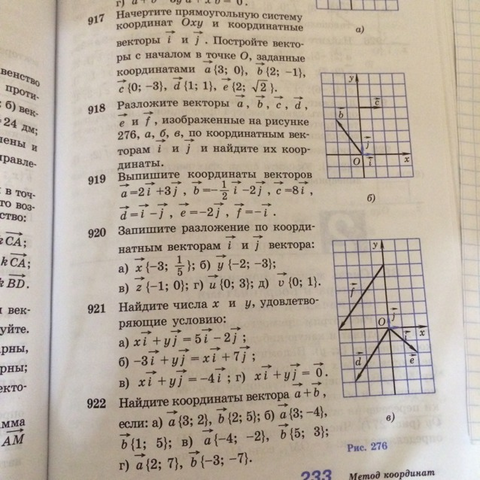 917 Начертите прямоугольную систему
координат Oxy и координатные
векторы i⃗ и j⃗. Постройте векто-
ры с началом в точке O, заданные
координатами a⃗{3; 0}, b⃗{2; −1},
c⃗{0; −3}, d⃗{1; 1}, e⃗{2; √2}.
918 Разложите векторы a⃗, b⃗, c⃗, d⃗,
e⃗ и f⃗, изображенные на рисунке
276, а, б, в, по координатным век-
торам i⃗ и j⃗ и найдите их коор-
динаты.
919 Выпишите координаты векторов
a⃗=2i⃗+3j⃗, b⃗=−1/2 i⃗−2j⃗, c⃗=8i⃗,
d⃗=i⃗−j⃗, e⃗=−2j⃗, f⃗=−i⃗.
920 Запишите разложение по коорди-
натным векторам i⃗ и j⃗ вектора:
а) x⃗{−3; 1/5}; б) y⃗{−2; −3};
в) z⃗{−1; 0}; г) u⃗{0; 3}; д) v⃗{0; 1}.
921 Найдите числа x и y, удовлетво-
ряющие условию:
а) xi⃗+yj⃗=5i⃗−2j⃗;
б) −3i⃗+yj⃗=xi⃗+7j⃗;
в) xi⃗+yj⃗=−4i⃗; г) xi⃗+yj⃗=0⃗.
922 Найдите координаты вектора a⃗+b⃗,
если: а) a⃗{3; 2}, b⃗{2; 5}; б) a⃗{3; −4},
b⃗{1; 5}; в) a⃗{−4; −2}, b⃗{5; 3};
г) a⃗{2; 7}, b⃗{−3; −7}.
233 Метод координат
а)
y
c⃗
b⃗
j⃗
O i⃗ x
б)
y
f⃗
j⃗
O i⃗ x
d⃗ e⃗
в)
Рис. 276
венство
проти-
б) век-
24 дм;
ены и
правле-
в точ-
то воз-
ство:
kCA⃗;
kCA⃗;
kBD⃗.
век-
уйте.
арны,
арны;
екто-
амма
AM⃗